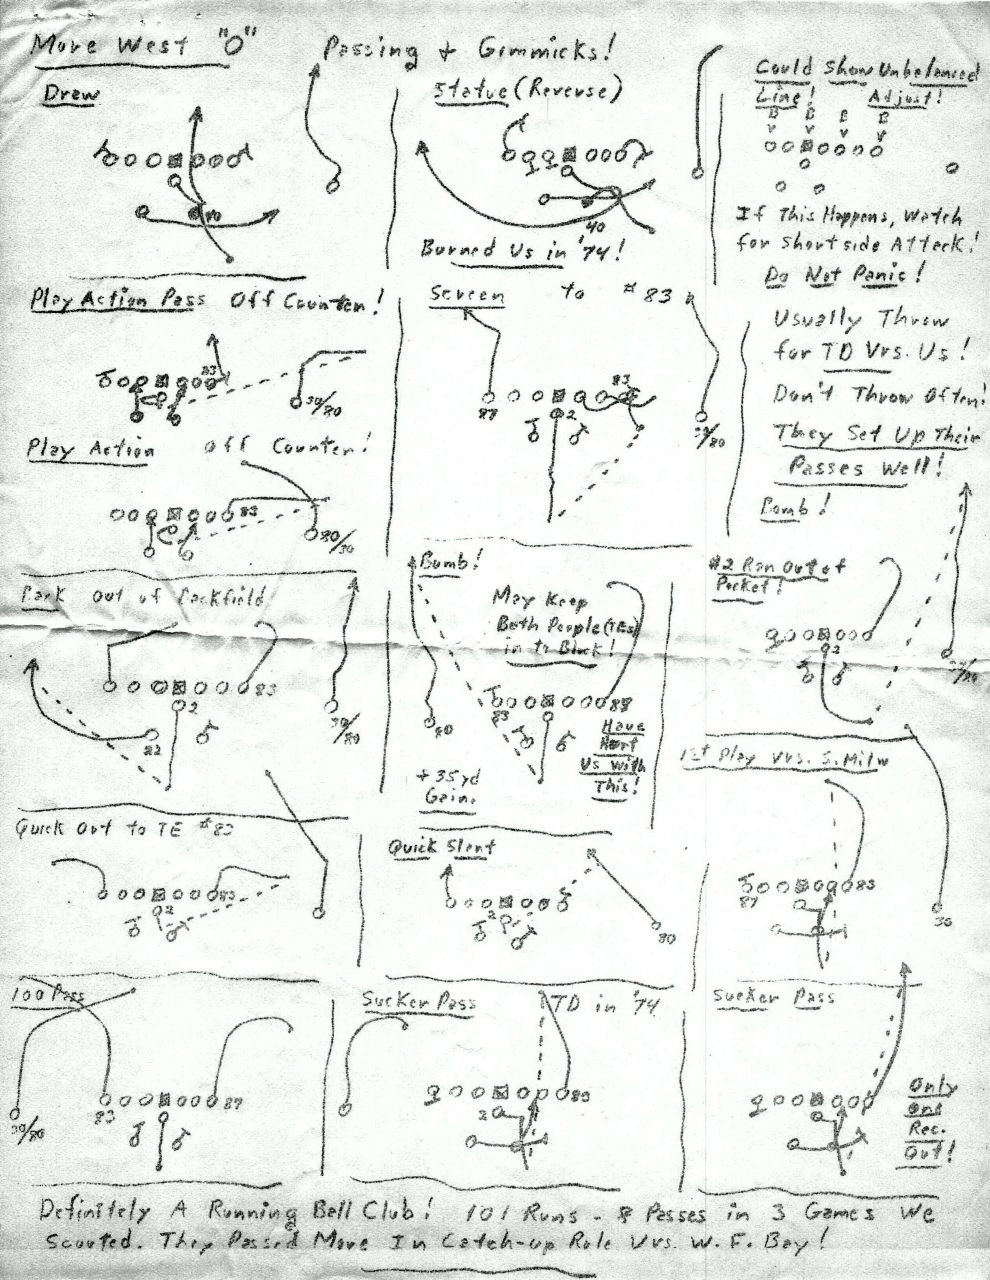 Move West "O"
Passing + Gimmicks!
Draw
40
Statue (Reverse)
40
Burned Us in '74!
Could Show Unbalanced
Line! Adjust!
B B B B
If This Happens, Watch
for Short side Attack!
Do Not Panic!
Play Action Pass Off Counter!
83
30/80
Screen to #83
83
87
2
30/80
Usually Throw
for TD Vrs. Us!
Don't Throw Often!
They Set Up Their
Passes Well!
Bomb!
Play Action Off Counter!
83
80/30
Back out of Backfield
83
2
82
30/80
Bomb!
May Keep
Both People (TEs)
in to Block!
83
88
80
Have
Hurt
Us With
This!
+35yd
Gain.
#2 Ran Out of
Pocket!
2
30/80
1st Play Vrs. S. Milw
83
87
30
Quick Out to TE #83
83
2
Quick Slant
2
80
100 Pass
83
87
30/80
Sucker Pass
TD in '74
89
2
Sucker Pass
Only
one
Rec.
Out!
Definitely A Running Ball Club! 101 Runs - 8 Passes in 3 Games We
Scouted. They Passed More In Catch-up Role Vrs. W. F. Bay!